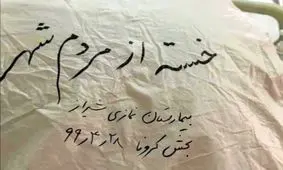 خسته از مردم شهر
بیمارستان نمازی شیراز
بخش کرونا ۹۹٫۴٫۲۸